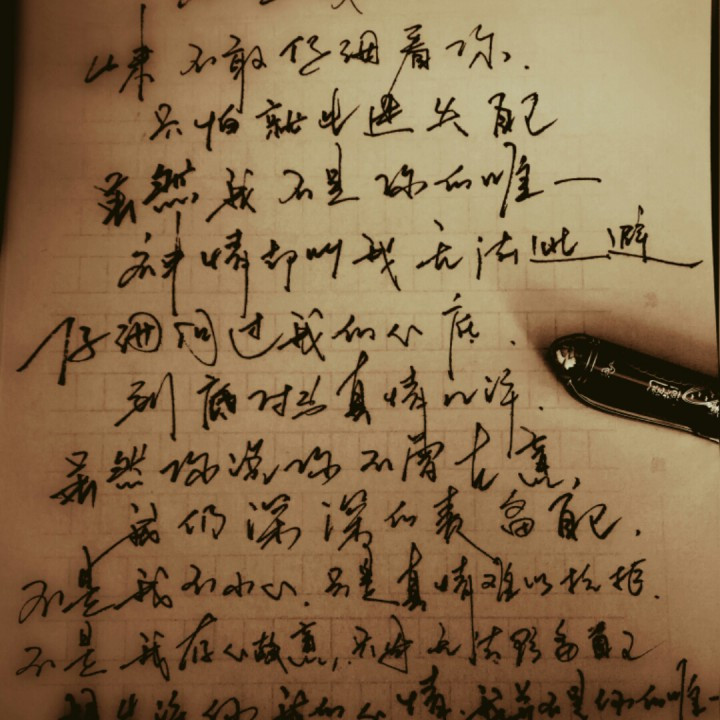 从来不敢仔细看你.
只怕就此迷失自己
虽然我不是你的唯一
神情却叫我无法避
仔细问过我的心底.
到底对你真情几许.
虽然你说你不曾在意,
我仍深深的责备自己.
不是我不小心.只是真情难以抗拒.
不是我存心故意,只因无法防备自己
你我的心情.我不是你的唯一